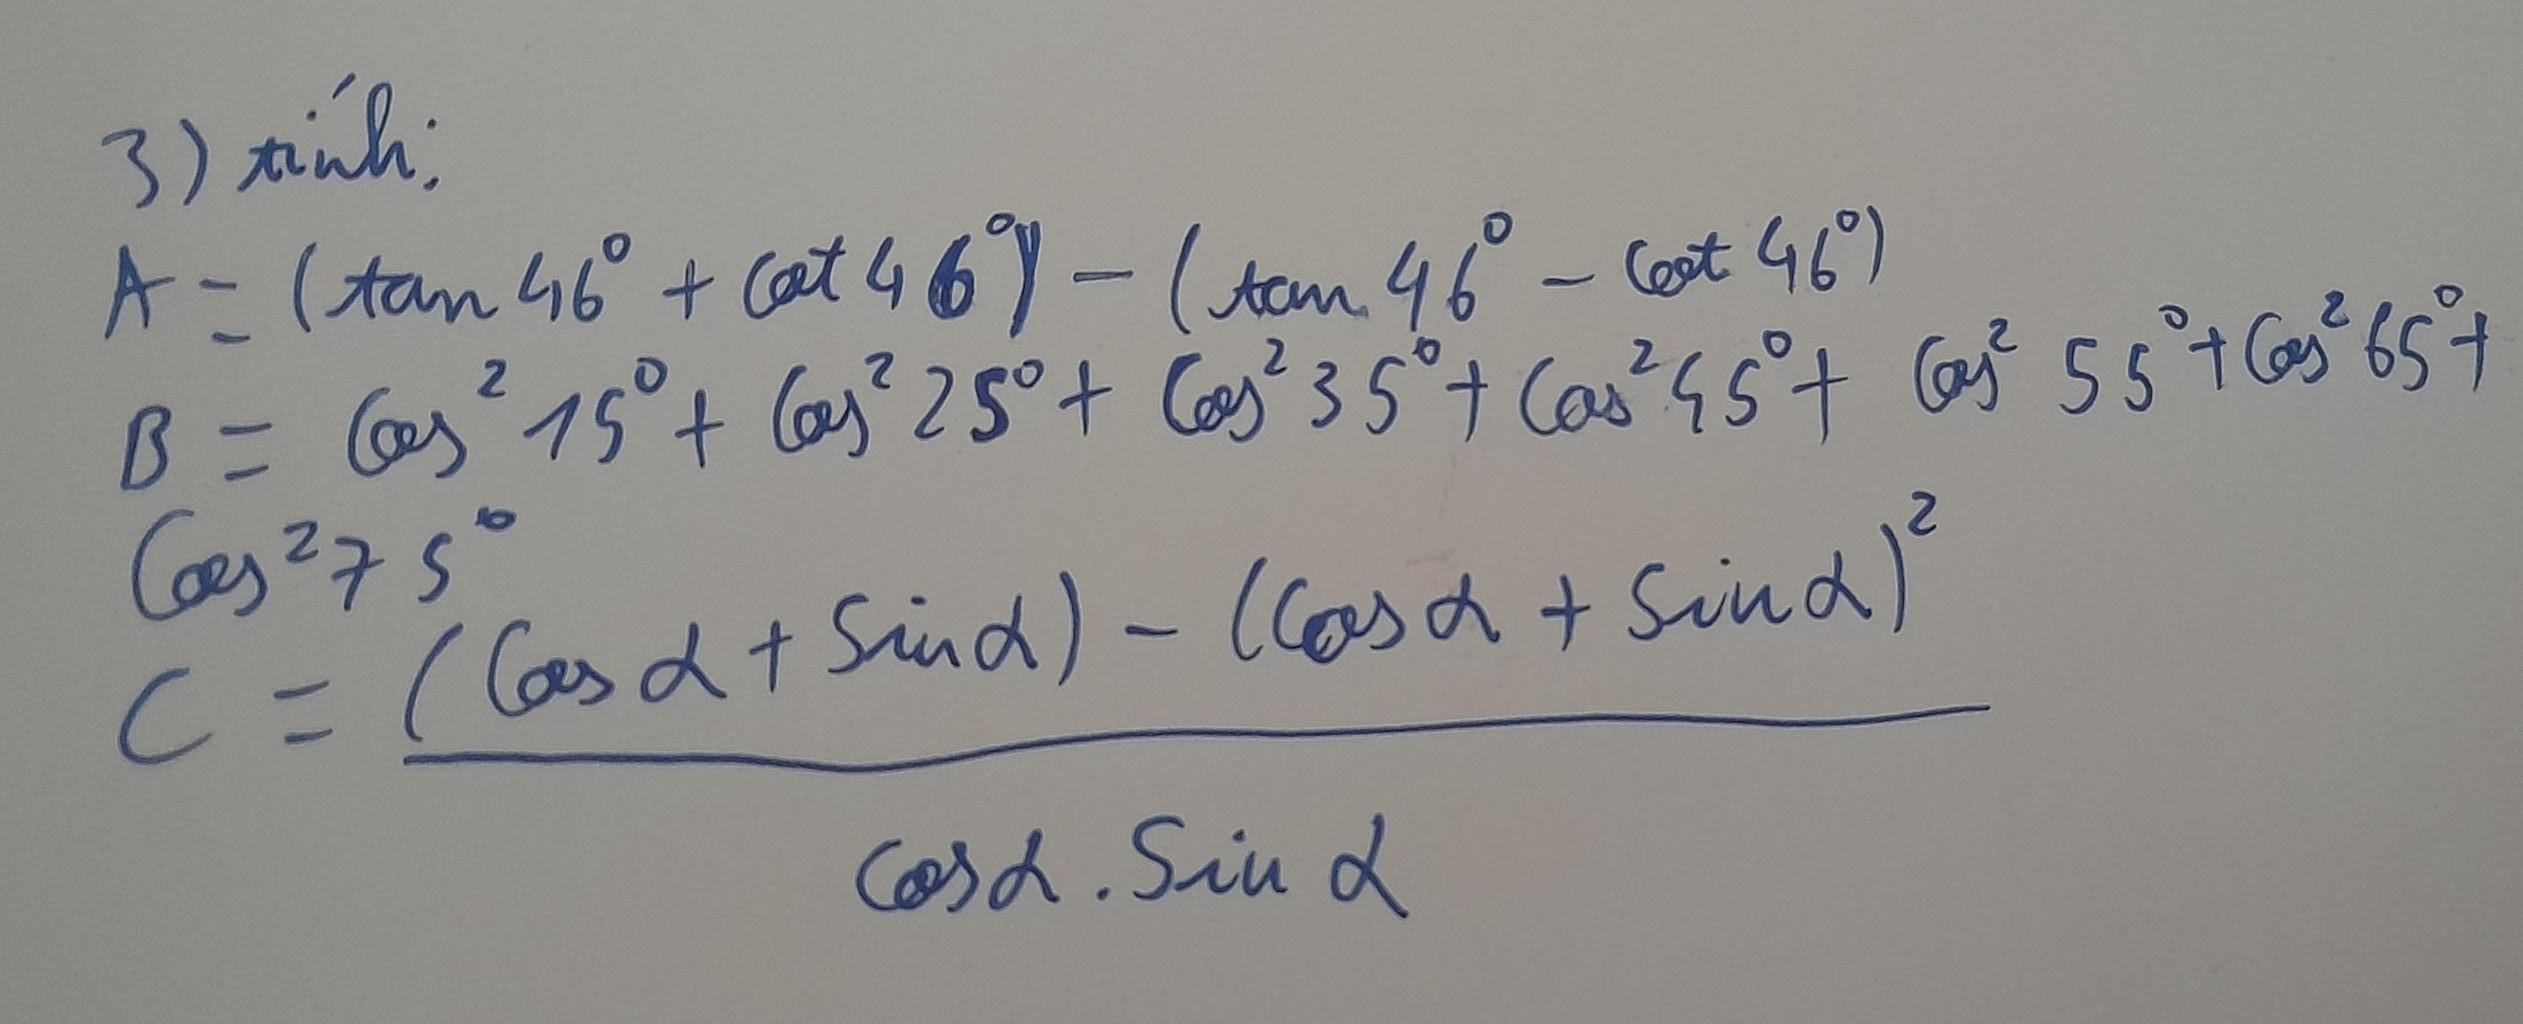 3) tính:
A = (tan 46° + cot 46°) - (tan 46° - cot 46°)
B = Cos² 15° + Cos² 25° + Cos² 35° + Cos² 45° + Cos² 55° + Cos² 65° +
Cos² 75°
C = (Cos α + Sin α) - (Cos α + Sin α)²
Cos α . Sin α